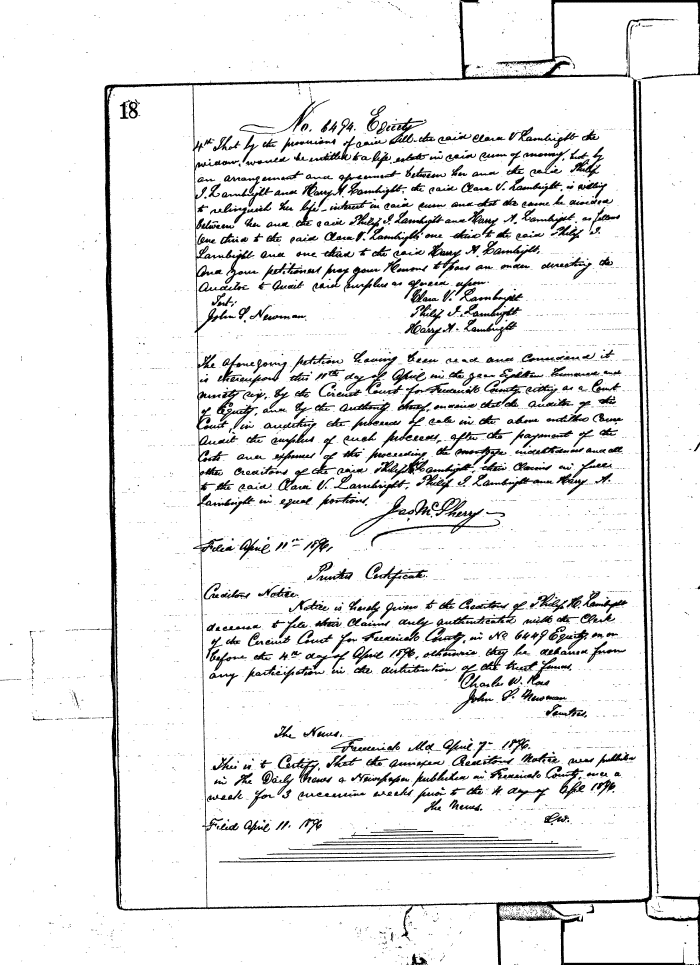 18
No. 6494. Equity
4th That by the provisions of said will the said Clara V Lambright the
widow, would be entitled to a life estate in said sum of money, but by
an arrangement and agreement between her and the said Philip
I. Lambright and Harry A. Lambright, the said Clara V. Lambright, is willing
to relinquish her life interest in said sum and that the same be divided
between her and the said Philip I. Lambright and Harry A. Lambright, as follows
one third to the said Clara V. Lambright, one third to the said Philip I.
Lambright and one third to the said Harry A. Lambright.
And your petitioners pray your Honors to pass an order directing the
Auditor to audit said surplus as agreed upon.
Test: Clara V. Lambright
John S. Newman. Philip I. Lambright
Harry A. Lambright
The aforegoing petition having been read and considered it
is thereupon this 11th day of April in the year Eighteen hundred and
ninety six, by the Circuit Court for Frederick County, sitting as a Court
of Equity, and by the authority thereof, ordered that the auditor of this
Court, in auditing the proceeds of sale in the above entitled cause
audit the surplus of such proceeds, after the payment of the
Costs and expenses of this proceeding the mortgage indebtedness and all
other creditors of the said Philip H. Lambright, their claims in full
to the said Clara V. Lambright, Philip I Lambright and Harry A.
Lambright in equal portions.
Jas. McSherry
Filed April 11th 1896.
Printers Certificate.
Creditors Notice.
Notice is hereby given to the Creditors of Philip H. Lambright
deceased to file their claims duly authenticated with the Clerk
of the Circuit Court for Frederick County, in No 6449 Equity, on or
before the 4th day of April 1896, otherwise they be debarred from
any participation in the distribution of the trust funds.
Charles W. Ross
John S. Newman
Trustees.
The News.
Frederick Md April 7th 1896.
This is to Certify, That the annexed Creditors Notice was published
in The Daily News a Newspaper published in Frederick County, once a
week for 3 successive weeks prior to the 4 day of Apl 1896.
The News.
Filed April 11. 1896